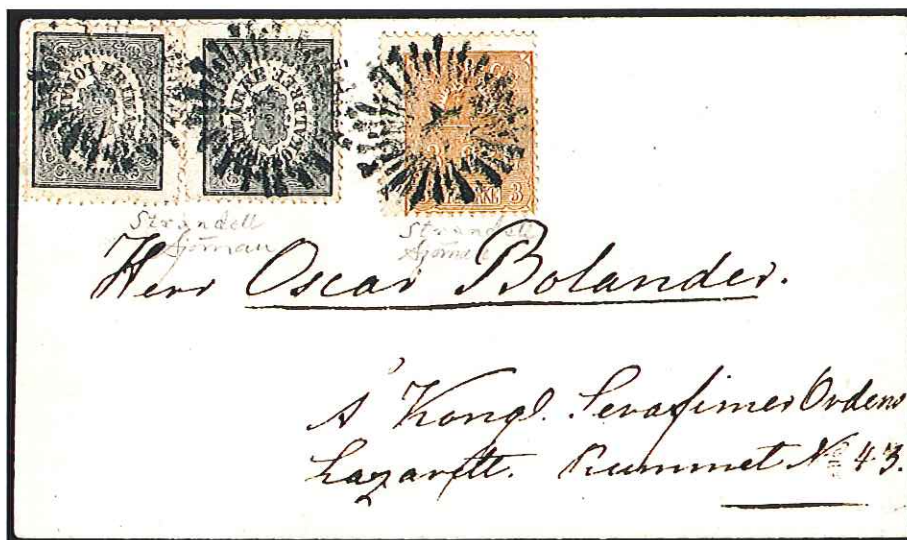 Strandell Strandell
Sjöman
Herr Oscar Bolander.
A' Kongl. Serafimer Ordens
Lazarett. Rummet No 43.
3